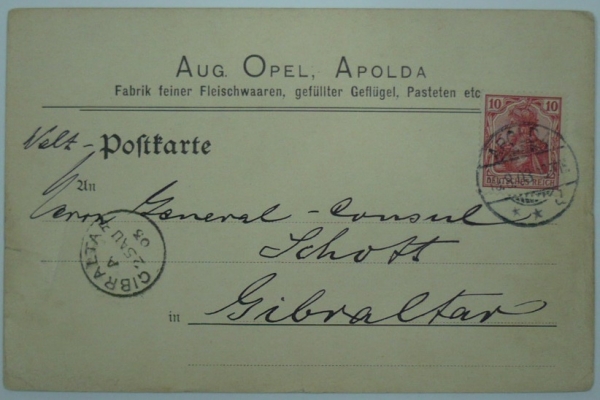 AUG. OPEL, APOLDA
Fabrik feiner Fleischwaaren, gefüllter Geflügel, Pasteten etc
10 10
DEUTSCHES REICH
Welt-Postkarte
An
Herrn General-Consul
Schott
in Gibraltar
GIBRALTAR
A
25 AU
03
APOLDA